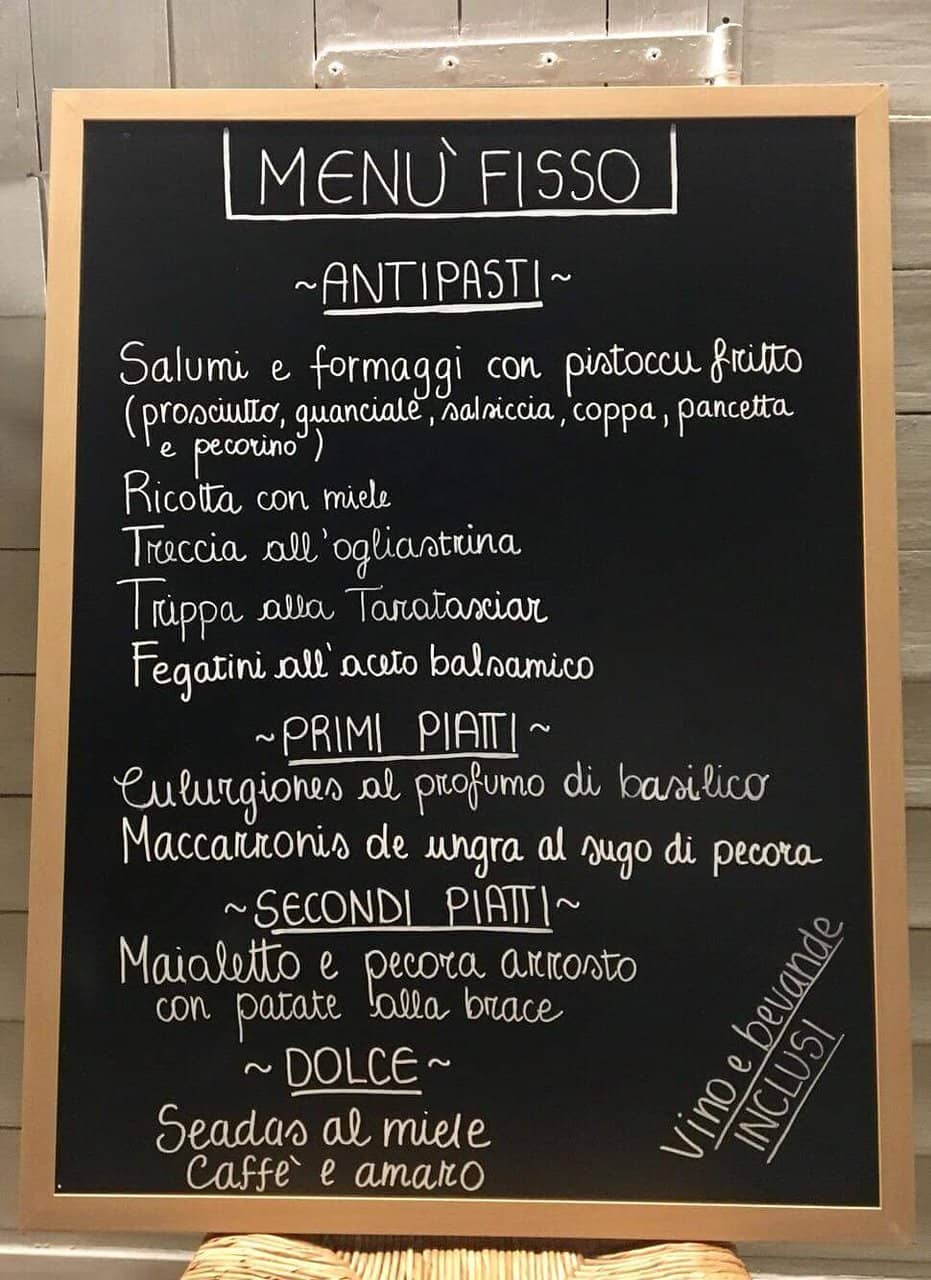 MENÙ FISSO
~ANTIPASTI~
Salumi e formaggi con pistoccu fritto
(prosciutto, guanciale, salsiccia, coppa, pancetta
e pecorino)
Ricotta con miele
Treccia all'ogliastrina
Trippa alla Taratasciar
Fegatini all'aceto balsamico
~PRIMI PIATTI~
Culurgiones al profumo di basilico
Maccarronis de ungra al sugo di pecora
~SECONDI PIATTI~
Maialetto e pecora arrosto
con patate alla brace
~DOLCE~
Seadas al miele
Caffè e amaro
Vino e bevande
INCLUSI